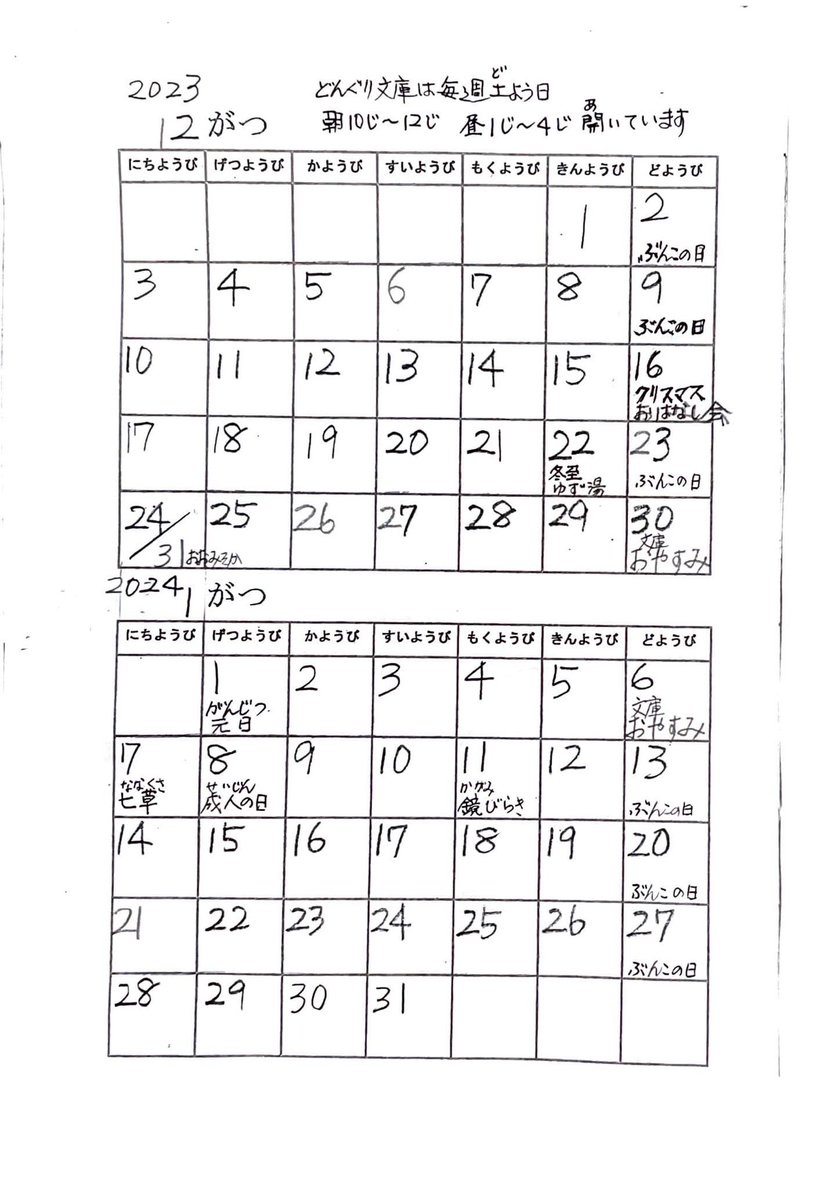 2023
どんぐり文庫は毎週土よう日
ど
12がつ
朝10じ～12じ 昼1じ～4じ 開いています
あ
にちようび げつようび かようび すいようび もくようび きんようび どようび
1 2
ぶんこの日
3 4 5 6 7 8 9
ぶんこの日
10 11 12 13 14 15 16
クリスマス
おはなし会
17 18 19 20 21 22 23
冬至
ゆず湯
ぶんこの日
24/31 25 26 27 28 29 30
おおみそか
文庫
おやすみ
2024 1がつ
にちようび げつようび かようび すいようび もくようび きんようび どようび
1 2 3 4 5 6
がんじつ
元日
文庫
おやすみ
7 8 9 10 11 12 13
ななくさ
七草
せいじん
成人の日
かがみ
鏡びらき
ぶんこの日
14 15 16 17 18 19 20
ぶんこの日
21 22 23 24 25 26 27
ぶんこの日
28 29 30 31